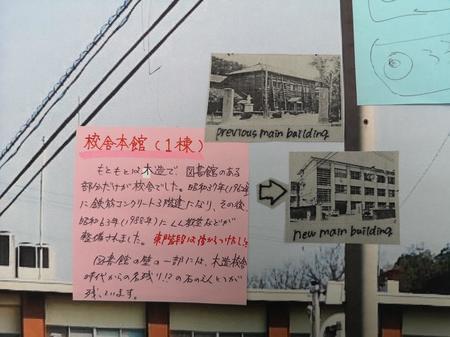 previous main building
校舎本館(1棟)
もともとは木造で、図書館のある
部分だけが校舎でした。昭和39年(1964)
に鉄筋コンクリート3階建になり、その後、
昭和63年(1988年)にLL教室などが
整備されました。東門階段は後からつけたし!
図書館の壁の一部には、木造校舎
時代からの名残り!?の石のえんとつが
残っています。
new main building